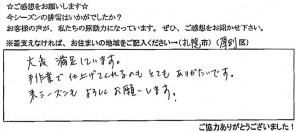 ☆ご感想をお願いします☆
今シーズンの排雪はいかがでしたか？
お客様の声が、私たちの原動力になっています。ぜひ、ご感想をお聞かせ下さい。
※差支えなければ、お住まいの地域をご記入ください→(札幌市)(厚別区)
大変 満足しています。
手作業で仕上げてくれるのもとてもありがたいです。
来シーズンもよろしくお願いします。
ご協力ありがとうございました！